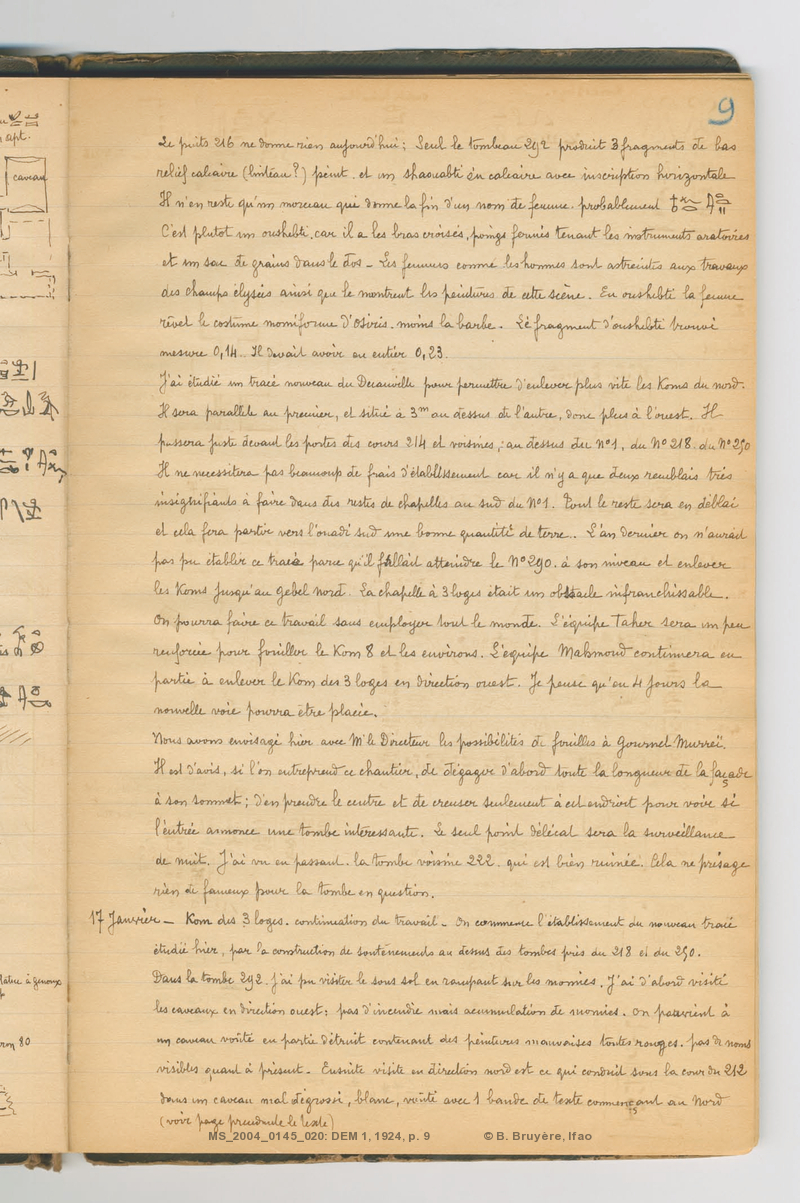 apt.
caveau
9
Le puits 216 ne donne rien aujourd'hui ; Seul le tombeau 292 produit 3 fragments de bas
relief calcaire (linteau ?) peint. et un shaouabti en calcaire avec inscription horizontale
Il n'en reste qu'un morceau qui donne la fin d'un nom de femme. probablement
C'est plutot un oushebti. car il a les bras croisés, poings fermés tenant les instruments aratoires
et un sac de grains dans le dos _ Les femmes comme les hommes sont astreintes aux travaux
des champs élysées ainsi que le montrent les peintures de cette scène. En oushebti la femme
revet le costume momiforme d'Osiris. moins la barbe. Le fragment d'oushebti trouvé
mesure 0,14.. Il devait avoir en entier 0,23.
J'ai étudié un tracé nouveau du Decauville pour permettre d'enlever plus vite les Koms du nord.
Il sera parallele au premier, et situé à 3m au dessus de l'autre, donc plus à l'ouest. Il
passera juste devant les portes des cours 214 et voisines, au dessus du N°1, du N° 218. du N° 290
Il ne necessitera pas beaucoup de frais d'établissement car il n'y a que deux remblais très
insignifiants à faire dans des restes de chapelles au sud du N°1. Tout le reste sera en déblai
et cela fera partir vers l'ouadi sud une bonne quantité de terre.. L'an dernier on n'aurait
pas pu établir ce tracé parce qu'il fallait atteindre le N° 290. à son niveau et enlever
les Koms jusqu'au Gebel nord. La chapelle à 3 loges était un obstacle infranchissable.
On pourra faire ce travail sans employer tout le monde. L'équipe Taher sera un peu
renforcée pour fouiller le Kom 8 et les environs. L'equipe Mahmoud continuera en
partie à enlever le Kom des 3 loges en direction ouest. Je pense qu'en 4 jours la
nouvelle voie pourra être placée.
Nous avons envisagé hier avec Mr le Directeur les possibilités de fouilles à Gournet Murraï.
Il est d'avis, si l'on entreprend ce chantier, de dégager d'abord toute la longueur de la façade
à son sommet ; d'en prendre le centre et de creuser seulement à cet endroit pour voir si
l'entrée annonce une tombe intéressante. Le seul point délicat sera la surveillance
de nuit. J'ai vu en passant. la tombe voisine 222. qui est bien ruinée. Cela ne présage
rien de fameux pour la tombe en question.
17 Janvier _ Kom des 3 loges. continuation du travail _ On commence l'établissement du nouveau tracé
étudié hier, par la construction de soutenements au dessus des tombes près du 218 et du 290.
Dans la tombe 292. j'ai pu visiter le sous sol en rampant sur les momies. J'ai d'abord visité
les caveaux en direction ouest: pas d'incendie mais accumulation de momies. On parvient à
un caveau voûté en partie détruit contenant des peintures mauvaises toutes rouges. pas de noms
visibles quant à présent. Ensuite visite en direction nord est ce qui conduit sous la cour du 212
dans un caveau mal dégrossi, blanc, voûté avec 1 bande de texte commençant au Nord
(voir page précédente le texte)
à genoux
80
MS_2004_0145_020: DEM 1, 1924, p. 9
© B. Bruyère, Ifao